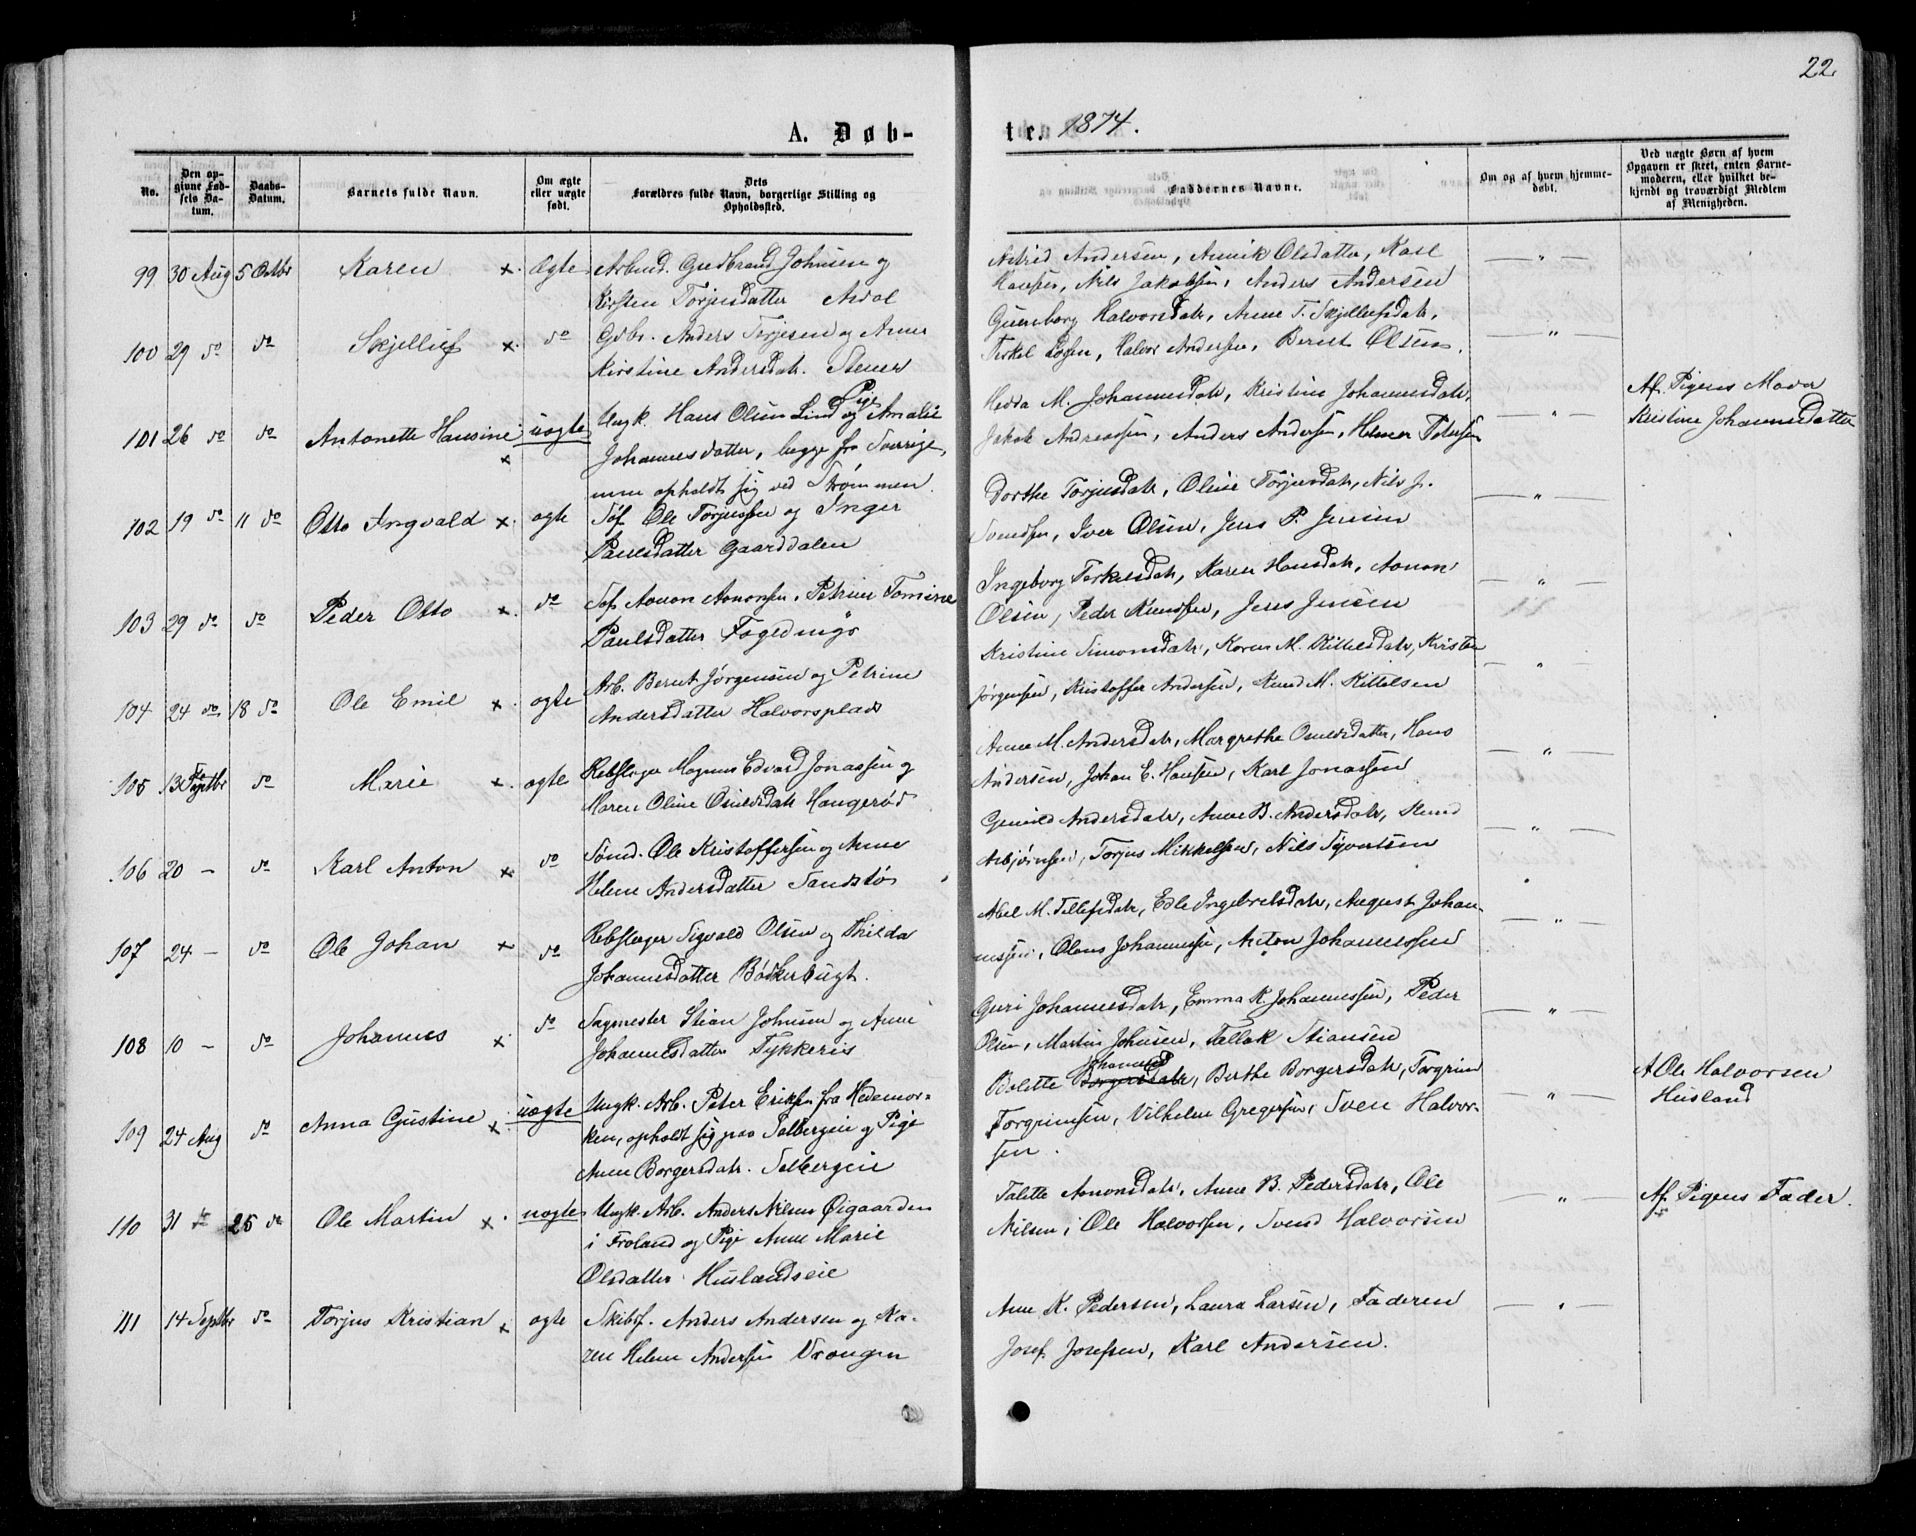 22.
A. Døb-
te. 1874.
No.
Den op-
givne Fød-
sels Da-
tum.
Daabs-
Datum.
Barnets fulde Navn.
Om ægte
eller uægte
født.
Dets
Forældres fulde Navn, borgerlige Stilling og
Opholdssted.
Faddernes Navne.
Om og af hvem hjemme-
døbt.
Ved uægte Børn af hvem
Opgaven er skeet, enten Barne-
moderen, eller hvilket be-
kjendt og troværdigt Medlem
af Menigheden.
99 30 Aug 5 Octbr Karen × Ægte Arbmd. Gudbrand Johnsen og
Kirsten Torjusdatter
Astrid Andersen, Annik Olsdatter, Karl
Hansen, Nils Jakobsen, Anders Andersen
— " —
100 29 do do Skjellief × do Gdbr. Anders Torjesen og Anne
Kirstine Andersdatr.
Halvorsdatr, Anne T. Skjelliefsdatr,
Terkel Halvor Andersen, Berent Olsen.
— " —
101 26 do do Antonette Hansine × uægte Ungk. Hans Olsen Lind og Pige Amalie
Johannesdatter, begge fra Sverrige,
opholdt sig ved Strømmen
Hedda M. Johannesdatr, Kristine Johannesdatr,
Jakob Andreassen, Anders Andersen, Helmer Petersen
— " —
Af Pigens Moder
Kristine Johannesdatter
102 19 do 11 do Otto Ingvald × ægte Søf. Ole Torjussen og Inger
Paulsdatter Gaarddalen
Dorthe Torjusdatr, Oline Torjusdatr, Nils J.
Svendsen, Iver Olsen, Jens P. Jensen
— " —
103 29 do do Peder Otto × do Søf. Aanon Aanonsen, Petrine Tomine
Paulsdatter
Ingeborg Terkelsdatr, Karen Hansdatr, Aanon
Olsen, Peder Knudsen, Jens Jensen
— " —
104 24 do 18 do Ole Emil × ægte Arb. Bernt Jørgensen og Petrine
Andersdatter Halvorsplads
Kristine Simonsdatr, Karen M. Kittelsdatr, Kirsten
Jørgensen, Kristoffer Andersen, Knud M. Kittelsen
— " —
105 13 Septbr do Marie × ægte Rebslager Magnus Edvard Jonassen og
Maren Oline Osuldsdatr Haugerød
Anne M. Andersdatr, Margrethe Osuldsdatter, Hans
Andersen, Johan E. Hansen, Karl Jonassen
— " —
106 20 — do Karl Anton × do Sømd. Ole Kristoffersen og Anne
Helene Andersdatter Sandstø
Gunild Andersdatr, Anne B. Andersdatr, Knud
Asbjørnsen, Torjus Mikkelsen, Nils Syvertsen
— " —
107 24 — do Ole Johan × do Rebslager Sigvald Olsen og Thilda
Johannesdatter Bødkerbugt.
Abel M. Tellefsdatr, Edle Ingebretsdatr, August Johan-
nessen, Olaus Johannessen, Anton Johannessen
— " —
108 10 — do Johannes × do Sagmester Stian Johnsen og Anne
Johannesdatter Tykkeris
Guri Johannesdatr, Emma K. Johannessen, Peder
Olsen, Martin Johnsen, Tellak Stiansen
— " —
109 24 Aug do Anna Gustine × uægte Ungk. Arb. Peter Eriksen fra Hedemor-
ken, opholdt sig paa Solbergeie og Pige
Anne Borgersdatr. Solbergeie
Bolette Borgersdatr, Berthe Borgersdatr, Torgrim
Torgrimsen, Vilhelm Gregersen, Sven Halvor-
sen.
— " —
A Ole Halvorsen
Husland
110 31 do 25 do Ole Martin × uægte Ungk. Arb. Anders Nilsen Øigaarden
i Froland og Pige Anne Marie
Olsdatter Huslandseie
Talette Aanonsdatr, Anne B. Pedersdatr, Ole
Nilsen, Ole Halvorsen, Svend Halvorsen
— " —
Af Pigens Fader.
111 14 Septbr do Torjus Kristian × ægte Skibsf. Anders Andersen og Ka-
ren Helene Andersen Vrangen
Ane K. Pedersen, Laura Larsen, Faderen
Josef Josefsen, Karl Andersen.
— " —